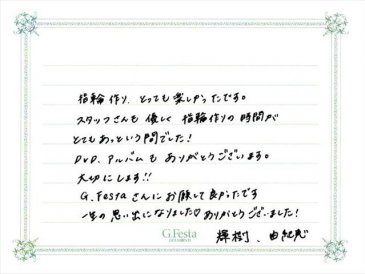 指輪作り、とっても楽しかったです。
スタッフさんも優しく 指輪作りの時間が
とてもあっという間でした!
DVD、アルバムも ありがとうございます。
大切にします!!
G.Festaさんにお願して良かったです
一生の思い出になりました♡ありがとうございました!
G.Festa
輝樹、由紀恵